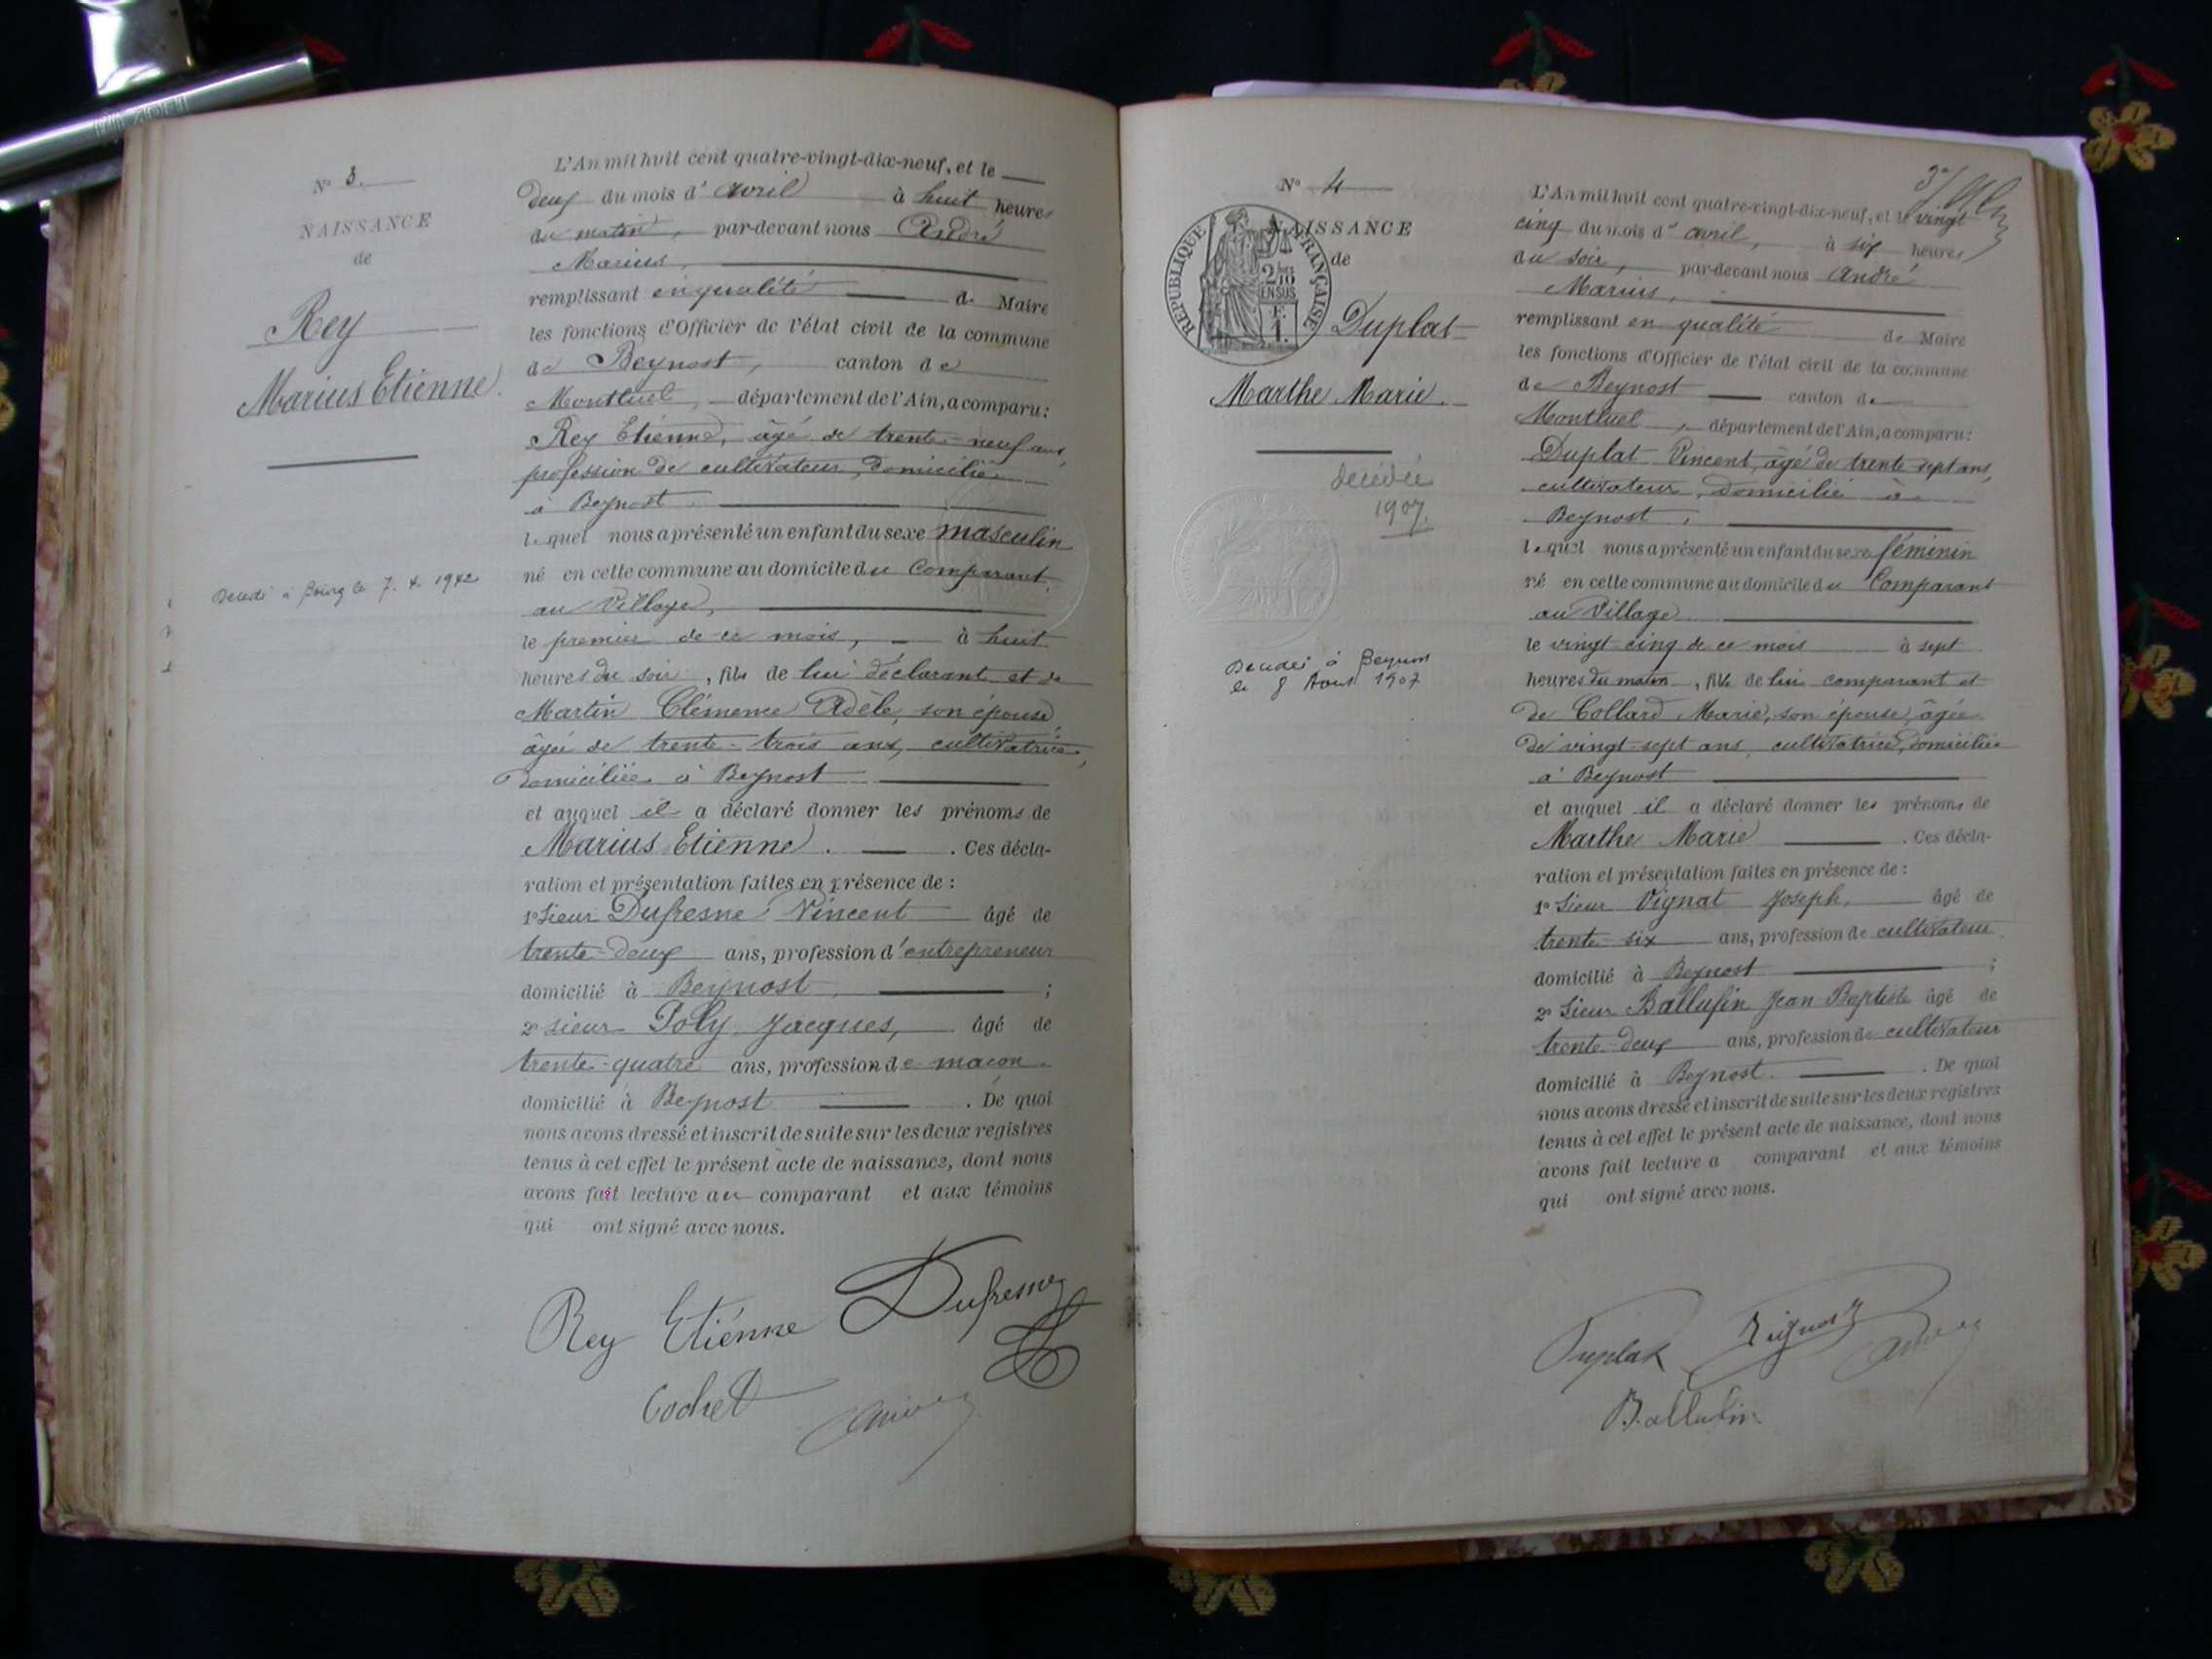 N° 3.
NAISSANCE
de
Rey
Marius Etienne.
Décédé à Bourg le 7. 4 1942
L'An mil huit cent quatre-vingt-dix-neuf, et le
deux du mois d' avril à huit heures
du matin, par-devant nous André
Marius,
remplissant en qualité de Maire
les fonctions d'Officier de l'état civil de la commune
de Beynost, canton de
Montluel, département de l'Ain, a comparu:
Rey Etienne, âgé de trente-neuf ans,
profession de cultivateur, domicilié
à Beynost.
lequel nous a présenté un enfant du sexe masculin
né en cette commune au domicile du Comparant
au Village,
le premier de ce mois, à huit
heures du soir, fils de lui déclarant et de
Martin Clémence Adèle, son épouse,
âgée de trente-trois ans, cultivatrice,
domiciliée à Beynost
et auquel il a déclaré donner les prénoms de
Marius Etienne. . Ces décla-
ration et présentation faites en présence de :
1° Sieur Dufresne Vincent âgé de
trente-deux ans, profession d'entrepreneur
domicilié à Beynost ;
2° sieur Poly Jacques, âgé de
trente-quatre ans, profession de macon.
domicilié à Beynost . De quoi
nous avons dressé et inscrit de suite sur les deux registres
tenus à cet effet le présent acte de naissance, dont nous
avons fait lecture au comparant et aux témoins
qui ont signé avec nous.
Rey Etiénne Dufresne
Cochet
N° 4
NAISSANCE
de
RÉPUBLIQUE FRANÇAISE
2/10
EN SUS
1 F.
Duplat
Marthe Marie.
décédée
1907.
Décédée à Beynost
le 8 Aout 1907
L'An mil huit cent quatre-vingt-dix-neuf, et le vingt
cinq du mois d' avril, à six heures
du soir, par-devant nous André
Marius,
remplissant en qualité de Maire
les fonctions d'Officier de l'état civil de la commune
de Beynost canton de
Montluel, département de l'Ain, a comparu:
Duplat Vincent, âgé de trente sept ans,
cultivateur, domicilié à
Beynost,
lequel nous a présenté un enfant du sexe féminin
né en cette commune au domicile du Comparant
au Village
le vingt-cinq de ce mois à sept
heures du matin, fille de lui comparant et
de Collard Marie, son épouse, âgée
de vingt-sept ans, cultivatrice, domiciliée
à Beynost
et auquel il a déclaré donner les prénoms de
Marthe Marie . Ces décla-
ration et présentation faites en présence de :
1° Sieur Vignat Joseph, âgé de
trente-six ans, profession de cultivateur
domicilié à Beynost ;
2° Sieur Ballufin Jean Baptiste âgé de
trente-deux ans, profession de cultivateur
domicilié à Beynost. . De quoi
nous avons dressé et inscrit de suite sur les deux registres
tenus à cet effet le présent acte de naissance, dont nous
avons fait lecture a comparant et aux témoins
qui ont signé avec nous.
Duplat Vignat
Ballufin